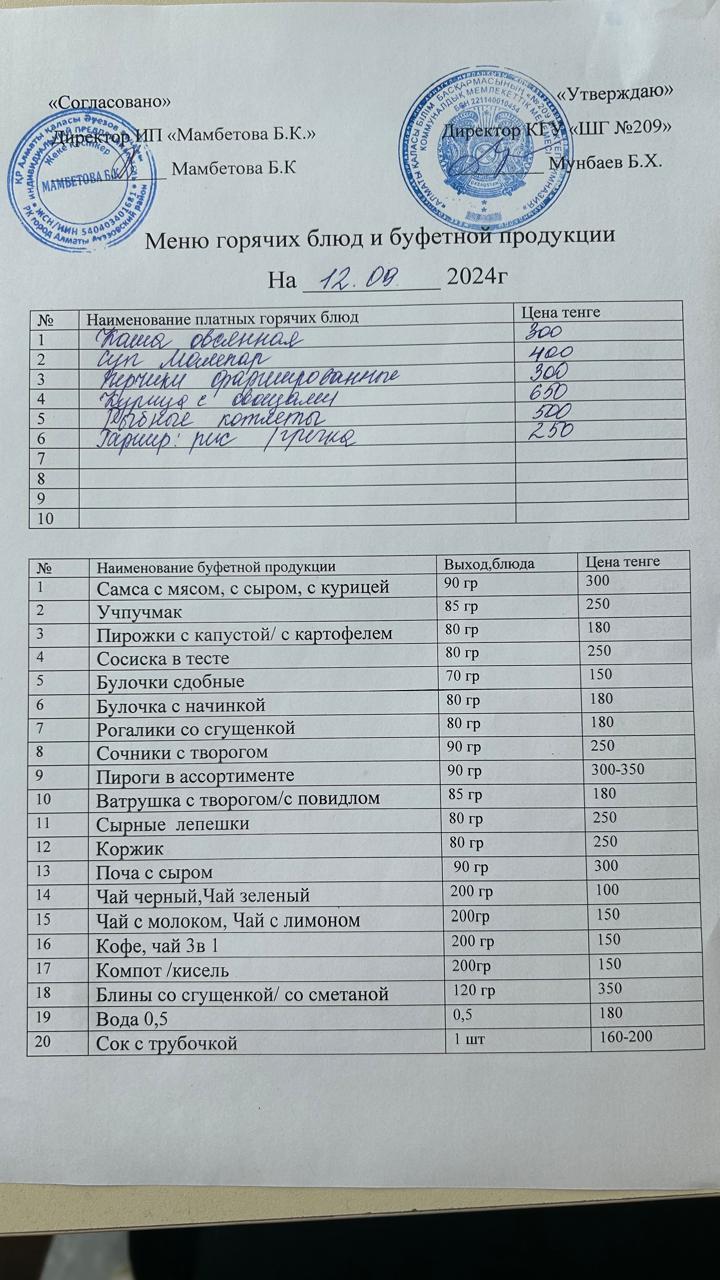 «Согласовано» «Утверждаю»
Директор ИП «Мамбетова Б.К.» Директор КГУ «ШГ №209»
Мамбетова Б.К Мунбаев Б.Х.
ҚР Алматы қаласы Әуезов
МАМБЕТОВА Б.К.
ЖСН/ИИН 540403401681
РК город Алматы Ауэзовский район
АЛМАТЫ ҚАЛАСЫ БІЛІМ БАСҚАРМАСЫНЫҢ
КОММУНАЛДЫҚ МЕМЛЕКЕТТІК
Меню горячих блюд и буфетной продукции
На 12.09 2024г
№ Наименование платных горячих блюд Цена тенге
1 Каша овсянная 300
2 Суп Мампар 400
3 Перчики фаршированные 300
4 Курица с овощами 650
5 Рыбные котлеты 500
6 Гарнир: рис /гречка 250
7
8
9
10
№ Наименование буфетной продукции Выход,блюда Цена тенге
1 Самса с мясом, с сыром, с курицей 90 гр 300
2 Учпучмак 85 гр 250
3 Пирожки с капустой/ с картофелем 80 гр 180
4 Сосиска в тесте 80 гр 250
5 Булочки сдобные 70 гр 150
6 Булочка с начинкой 80 гр 180
7 Рогалики со сгущенкой 80 гр 180
8 Сочники с творогом 90 гр 250
9 Пироги в ассортименте 90 гр 300-350
10 Ватрушка с творогом/с повидлом 85 гр 180
11 Сырные лепешки 80 гр 250
12 Коржик 80 гр 250
13 Поча с сыром 90 гр 300
14 Чай черный,Чай зеленый 200 гр 100
15 Чай с молоком, Чай с лимоном 200гр 150
16 Кофе, чай 3в 1 200 гр 150
17 Компот /кисель 200гр 150
18 Блины со сгущенкой/ со сметаной 120 гр 350
19 Вода 0,5 0,5 180
20 Сок с трубочкой 1 шт 160-200